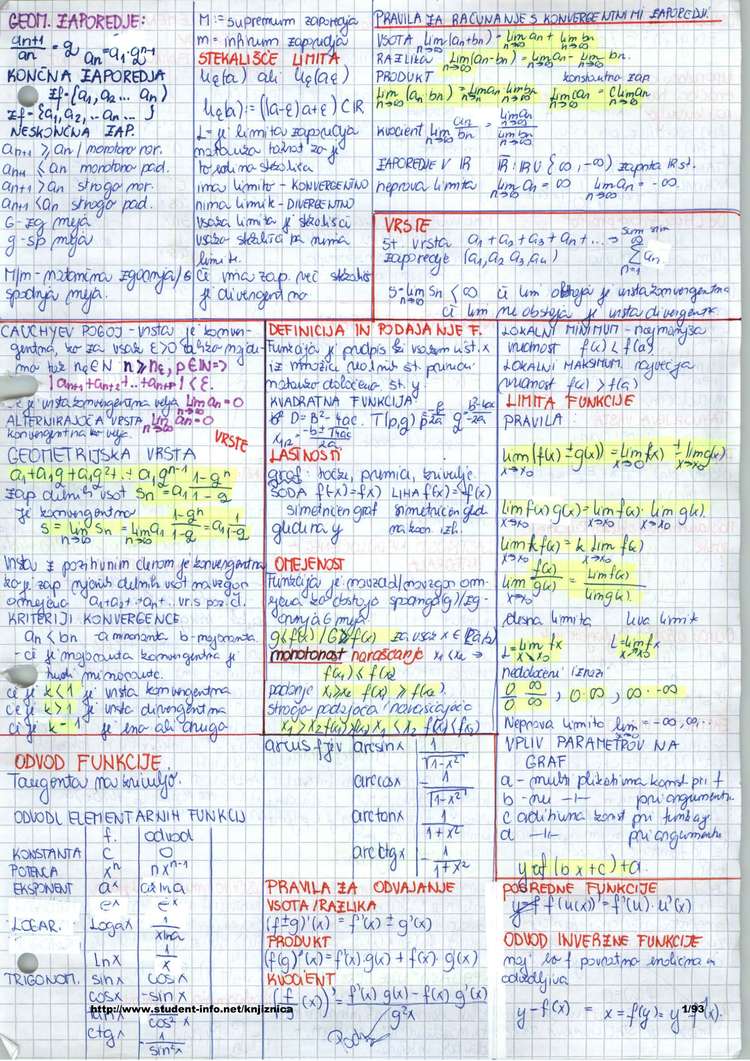 GEOM. ZAPOREDJE:
an+1/an = q   an = a1·q^n-1
KONČNA ZAPOREDJA
Zf={a1, a2 ... an}
Zf={a1, a2, .. an ... }
NESKONČNA ZAP.
an+1 ≥ an / monotono nar.
an+1 ≤ an monotono pad.
an+1 > an strogo nar.
an+1 < an strogo pad.
G-zg meja
g-sp meja
M/m-natančna zgornja/s
spodnja meja.
M := supremum zaporedja
m = infimum zaporedja
STEKALIŠČE LIMITA
Uε(a) ali Uε(a,ε)
Uε(a) := (a-ε, a+ε) ⊂ IR
L je limita zaporedja
natanko takrat ko je
to edino stekališče
ima limito - KONVERGENTNO
nima limite - DIVERGENTNO
vsaka limita je stekališče
vsako stekališče pa nima
limite.
Če ima zap. več stekališč
je divergentno
PRAVILA ZA RAČUNANJE S KONVERGENTNIMI ZAPOREDJI:
VSOTA lim n→∞ (an+bn) = lim n→∞ an + lim n→∞ bn
RAZLIKA lim n→∞ (an-bn) = lim n→∞ an - lim n→∞ bn.
PRODUKT konstantno zap.
lim n→∞ (an·bn) = lim n→∞ an · lim n→∞ bn   lim n→∞ can = c lim n→∞ an
kvocient lim n→∞ an/bn = lim n→∞ an / lim n→∞ bn
ZAPOREDJE V IR   IR: IR U {∞, -∞) zaprta IR št.
neprava limita lim n→∞ an = ∞   lim n→∞ an = -∞.
VRSTE
št. vrsta a1 + a2 + a3 + an + ... → ∞ Σ n=1 an
zaporedje (a1, a2, a3, a4)
S = lim n→∞ Sn < ∞ če lim obstaja je vrsta konvergentna
če lim ne obstaja je vrsta divergentna
CAUCHYEV POGOJ - vrsta je konver-
gentna, ko za vsak ε>0
nε∈N n≥nε, p∈N =>
|an+1+an+2+..+an+p| < ε.
Če je vrsta konvergentna velja lim n→∞ an=0
ALTERNIRAJOČA VRSTA lim n→∞ an=0
konvergentna ko velja.
VRSTE
GEOMETRIJSKA VRSTA
a1+a1q+a1q²+..+a1q^n-1
zap delnih vsot Sn = a1 1-q^n / 1-q
je konvergentna
S = lim n→∞ Sn = lim n→∞ a1 1-q^n / 1-q = a1 1/1-q
Vrsta z pozitivnim členom je konvergentna
ko je zap njenih delnih vsot navzgor
omejeno a1+a2+..+an+.. vrs poz. čl.
KRITERIJI KONVERGENCE
an < bn - a minoranta b-majoranta.
- če je majoranta konvergentna je
tudi minoranta.
če je k<1 je vrsta konvergentna
če je k>1 je vrsta divergentna
če je k=1 je ena ali druga
DEFINICIJA IN PODAJANJE F.
Funkcija je predpis ki vsakemu št. x
iz množice realnih št. priredi
natanko določeno št. y
KVADRATNA FUNKCIJA
D = B²-4ac. T(p,q)
x1,2 = -b±√b²-4ac / 2a
LASTNOSTI
graf: točke, premica, krivulje
SODA f(-x)=f(x) LIHA f(-x)=-f(x)
simetričen graf simetričen graf
glede na y na koor. izh.
OMEJENOST
Funkcija je navzad/navzgor om-
ejena ko obstaja spodnja(g)/zg-
ornja G meja
g≤f(x) / G≥f(x) za vsak x ∈ [a,b]
monotonost naraščanje x1<x2 →
f(x1) ≤ f(x2)
padanje x1>x2 f(x1) ≥ f(x2)
strogo padajoča/naraščajoča
x1>x2 f(x1)>f(x2) x1<x2 f(x1)<f(x2)
LOKALNI MINIMUM - najmanjša
vrednost f(x) < f(a)
LOKALNI MAKSIMUM največja
vrednost f(x) > f(a)
LIMITA FUNKCIJE
PRAVILA:
lim x→x0 (f(x) ± g(x)) = lim x→x0 f(x) ± lim x→x0 g(x)
lim x→x0 f(x) g(x) = lim x→x0 f(x) · lim x→x0 g(x)
lim x→x0 k f(x) = k lim x→x0 f(x)
lim x→x0 f(x)/g(x) = lim f(x) / lim g(x).
desna limita leva limita
L = lim x↘x0 fx   L = lim x↗x0 fx
nedoločeni izrazi
0/0 ∞/∞, 0·∞, ∞-∞
Neprava limita lim x→x0 = -∞, ∞, ..
VPLIV PARAMETROV NA
GRAF
a - multiplikativna konst. pri f
b - nu -||- pri argumentu.
c aditivna konst pri funkciji
d -||- pri argumentu
y = af(bx+c)+d.
ODVOD FUNKCIJE.
Tangenta na krivuljo.
ODVODI ELEMENTARNIH FUNKCIJ
f. odvod
KONSTANTA c 0
POTENCA x^n nx^n-1
EKSPONENT a^x a^x ln a
e^x e^x
LOGAR. loga x 1/x ln a
ln x 1/x
TRIGONOM. sin x cos x
cos x -sin x
tan x 1/cos² x
ctg x -1/sin² x
arcus fjev arcsin x 1/√1-x²
arccos x -1/√1-x²
arctan x 1/1+x²
arcctg x -1/1+x²
PRAVILA ZA ODVAJANJE
VSOTA/RAZLIKA
(f±g)'(x) = f'(x) ± g'(x)
PRODUKT
(f·g)'(x) = f'(x)·g(x) + f(x)·g'(x)
KVOCIENT
(f/g (x))' = f'(x) g(x) - f(x) g'(x) / g²x
POSREDNE FUNKCIJE
f(u(x))' = f'(u)·u'(x)
ODVOD INVERZNE FUNKCIJE
naj bo f povratno enolična in
odvedljiva
y = f(x) = x = f(y) = y = f⁻¹(x)
http://www.student-info.net/knjiznica
1/93